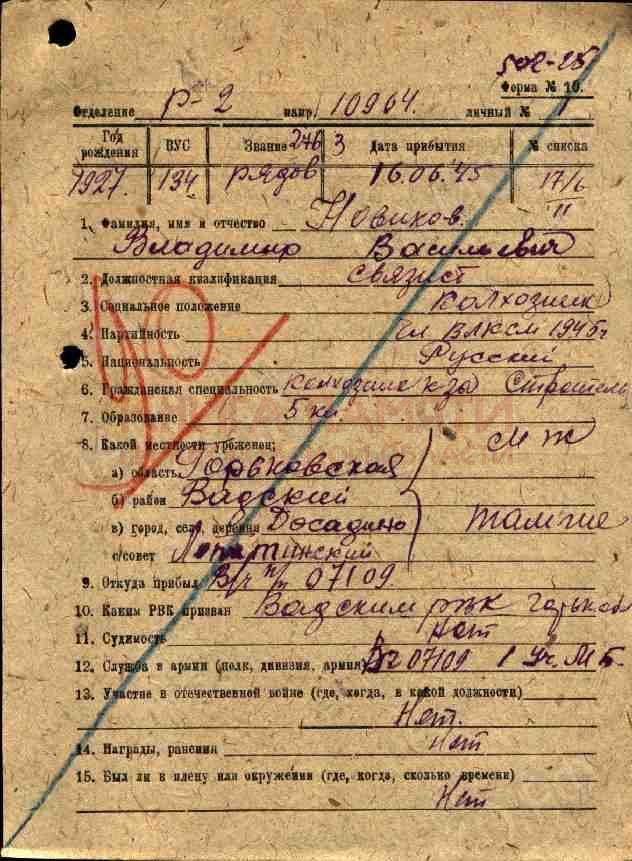 502-25
Форма № 10.
Отделение Р-2 марш/10964. личный №
Год рождения ВУС Звание 246 3 Дата прибытия № списка
1927 134 рядов 16.06.45 17/6
11
1. Фамилия, имя и отчество Новиков.
Владимир Васильевич
2. Должностная квалификация связист
3. Социальное положение колхозник
4. Партийность чл ВЛКСМ 1945г
5. Национальность Русский
6. Гражданская специальность колхозник к/за Строитель
7. Образование 5 кл.
8. Какой местности уроженец; М Ж
а) область Горьковская
б) район Вадский
в) город, село, деревня Досадино там же
с/совет Лопатинский
9. Откуда прибыл В/ч п/п 07109.
10. Каким РВК призван Вадским рвк Горьков
11. Судимость Нет
12. Служба в армии (полк, дивизия, армия) Вч 07109 1 Уч. М Б.
13. Участие в отечественной войне (где, когда, в какой должности)
Нет.
14. Награды, ранения Нет
15. Был ли в плену или окружении (где, когда, сколько времени)
Нет